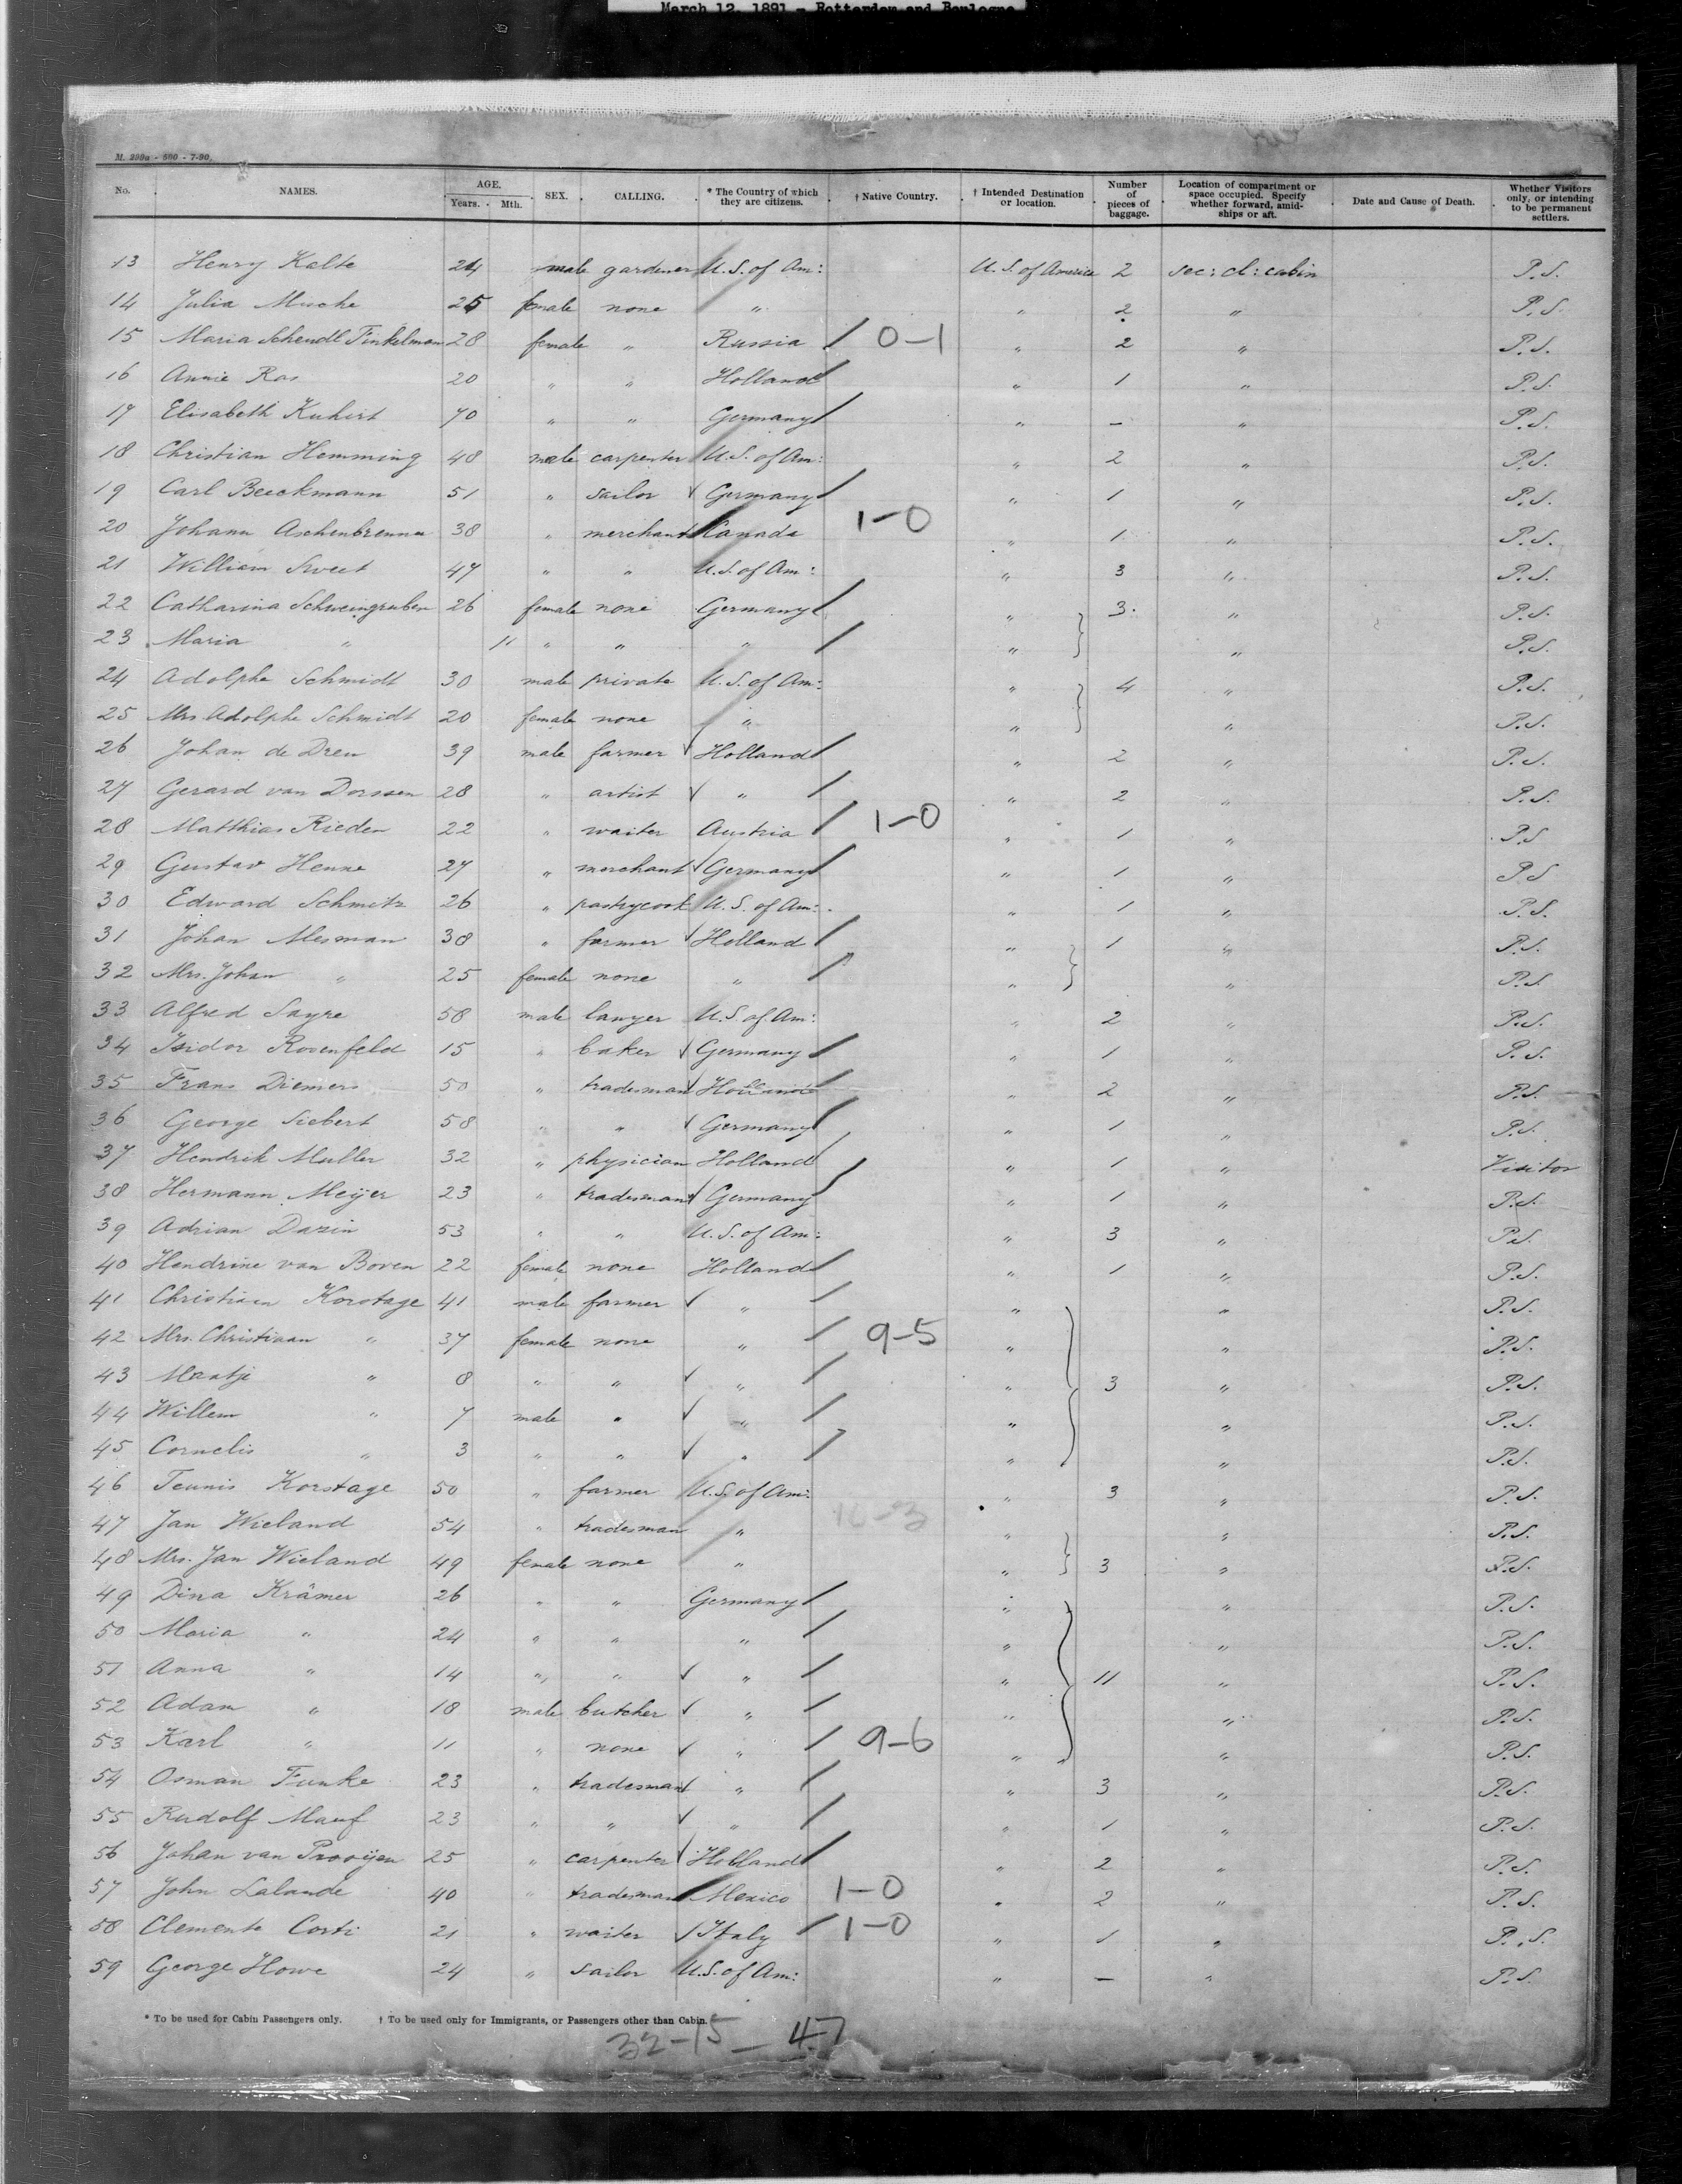 March 12, 1891 - Rotterdam and Boulogne
M. 299a - 500 - 7-90.
No. NAMES. AGE. Years. Mth. SEX. CALLING. * The Country of which they are citizens. † Native Country. † Intended Destination or location. Number of pieces of baggage. Location of compartment or space occupied. Specify whether forward, amidships or aft. Date and Cause of Death. Whether Visitors only, or intending to be permanent settlers.
13 Henry Kalte 24 male gardener U.S. of Am: U.S. of America 2 sec: cl: cabin P.S.
14 Julia Muche 25 female none " " 2 " P.S.
15 Maria Schendll Finkelman 28 female " Russia 0-1 " 2 " P.S.
16 Annie Ras 20 " " Holland " 1 " P.S.
17 Elisabeth Kuhirt 70 " " Germany " — " P.S.
18 Christian Hemming 48 male carpenter U.S. of Am: " 2 " P.S.
19 Carl Beeckmann 51 " sailor √ Germany " 1 " P.S.
20 Johann Aschenbrenner 38 " merchant Canada 1-0 " 1 " P.S.
21 William Sweet 47 " " U.S. of Am: " 3 " P.S.
22 Catharina Schweingruber 26 female none Germany " 3 " P.S.
23 Maria " 11 " " " " " P.S.
24 Adolphe Schmidt 30 male private U.S. of Am: " 4 " P.S.
25 Mrs. Adolphe Schmidt 20 female none " " " P.S.
26 Johan de Dreu 39 male farmer √ Holland " 2 " P.S.
27 Gerard van Dorssen 28 " artist √ " " 2 " P.S.
28 Matthias Rieder 22 " waiter Austria 1-0 " 1 " P.S
29 Gustav Henne 27 " merchant √ Germany " 1 " P.S
30 Edward Schmitz 26 " pastrycook U.S. of Am: " 1 " P.S.
31 Johan Mesman 38 " farmer √ Holland " 1 " P.S.
32 Mrs. Johan " 25 female none " " " P.S.
33 Alfred Sayre 58 male lawyer U.S. of Am: " 2 " P.S.
34 Isidor Rosenfeld 15 " baker √ Germany " 1 " P.S.
35 Frans Diemers 50 " tradesman √ Holland " 2 " P.S.
36 George Siebert 58 " " √ Germany " 1 " P.S.
37 Hendrik Muller 32 " physician Holland " 1 " Visitor
38 Hermann Meijer 23 " tradesman √ Germany " 1 " P.S.
39 Adrian Dazin 53 " " U.S. of Am: " 3 " P.S.
40 Hendrine van Boven 22 female none Holland " 1 " P.S.
41 Christiaan Korstage 41 male farmer √ " " " P.S.
42 Mrs. Christiaan " 37 female none " 9-5 " " P.S.
43 Maatje " 8 " " √ " " 3 " P.S.
44 Willem " 7 male " √ " " " P.S.
45 Cornelis " 3 " " √ " " " P.S.
46 Teunis Korstage 50 " farmer U.S. of Am: " 3 " P.S.
47 Jan Wieland 54 " tradesman " " " P.S.
48 Mrs. Jan Wieland 49 female none " " 3 " P.S.
49 Dina Krämer 26 " " Germany " " P.S.
50 Maria " 24 " " " " " P.S.
51 Anna " 14 " " √ " " 11 " P.S.
52 Adam " 18 male butcher √ " " " P.S.
53 Karl " 11 " none √ " 9-6 " " P.S.
54 Osman Funke 23 " tradesman √ " " 3 " P.S.
55 Rudolf Mauf 23 " " √ " " 1 " P.S.
56 Johan van Prooijen 25 " carpenter √ Holland " 2 " P.S.
57 John Lalande 40 " tradesman Mexico 1-0 " 2 " P.S.
58 Clemente Corti 21 " waiter √ Italy 1-0 " 1 " P.S.
59 George Howe 24 " sailor U.S. of Am: " — " P.S.
* To be used for Cabin Passengers only. † To be used only for Immigrants, or Passengers other than Cabin.
32-15 — 47